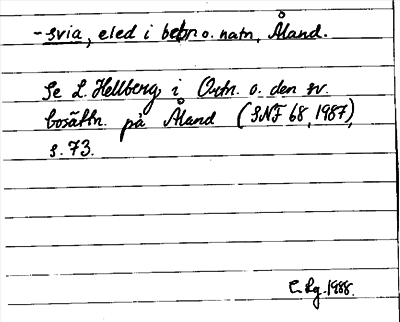 -svia, eled i bebn o. natn, Åland.
Se L. Hellberg, i Ortn. o. den sv.
bosättn. på Åland (SNF 68, 1987),
s. 73.
C. Lg. 1988.